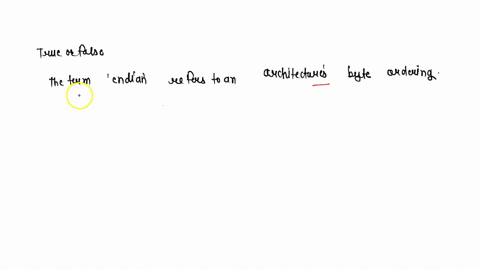 True or false
The term 'endian' refers to an architecture's byte ordering.